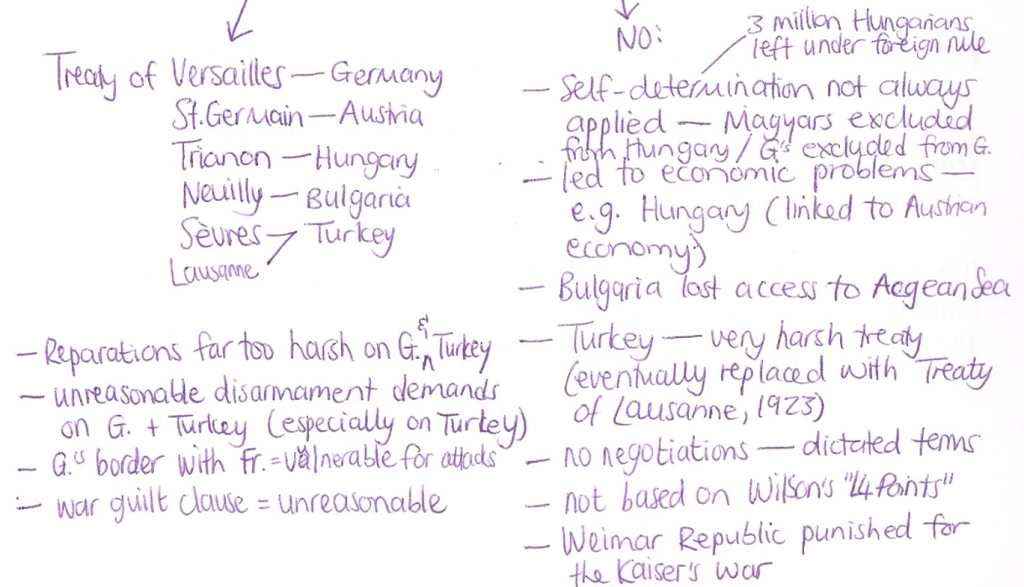 Treaty of Versailles — Germany
St. Germain — Austria
Trianon — Hungary
Neuilly — Bulgaria
Sèvres — Turkey
Lausanne
— Reparations far too harsh on G. & Turkey
— unreasonable disarmament demands
on G. + Turkey (especially on Turkey)
— G.'s border with Fr. = vulnerable for attacks
— war guilt clause = unreasonable
NO:
3 million Hungarians
left under foreign rule
— Self-determination not always
applied — Magyars excluded
from Hungary / G's excluded from G.
— led to economic problems —
e.g. Hungary (linked to Austrian
economy)
— Bulgaria lost access to Aegean Sea
— Turkey — very harsh treaty
(eventually replaced with Treaty
of Lausanne, 1923)
— no negotiations — dictated terms
— not based on Wilson's "14 Points"
— Weimar Republic punished for
the Kaiser's war